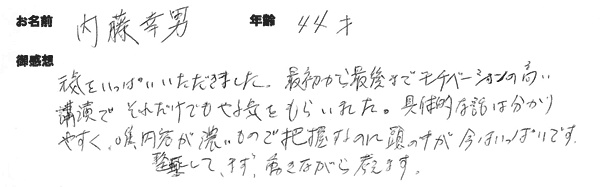 お名前 内藤幸男 年齢 44才
御感想
元気をいっぱいいただきました。最初から最後までモチベーションの高い
講演でそれだけでもやる気をもらいれた。具体的な話は分かり
やすく、内容が濃いもので把握するのに頭の中が今はいっぱいです。
整理して、まず、動きながら考えます。